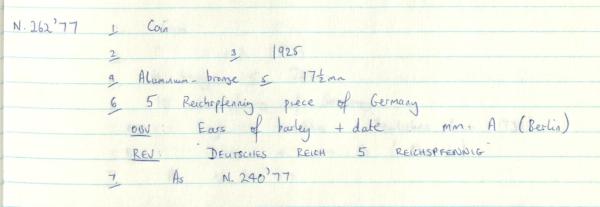 N. 262'77 1 Coin
2 3 1925
4 Aluminium-bronze 5 17½mm
6 5 Reichspfennig piece of Germany
OBV Ears of barley + date mm. A (Berlin)
REV "DEUTSCHES REICH 5 REICHSPFENNIG"
7 As N. 240'77